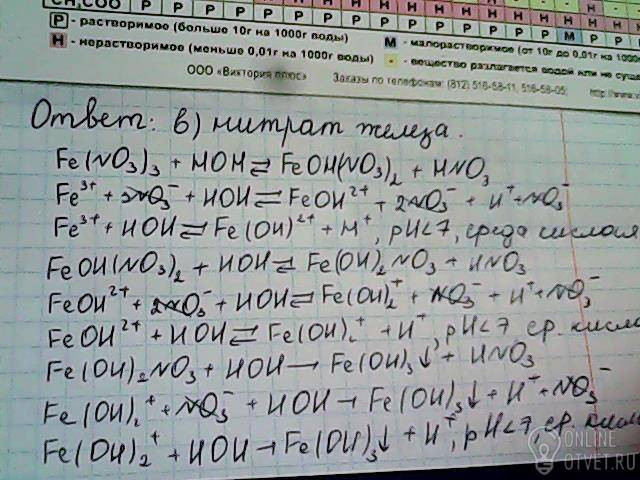 CH₃COO Р Р Р Р Р Р Р Р Р Р М Р Р
Р - растворимое (больше 10г на 1000г воды)
М - малорастворимое (от 10г до 0,01г на 1000г
Н - нерастворимое (меньше 0,01г на 1000г воды)
- - вещество разлагается водой или не сущ
ООО «Виктория плюс» Заказы по телефонам: (812) 516-58-11, 516-58-05; http://www.v
Ответ: в) нитрат железа.
Fe(NO₃)₃ + HOH ⇄ FeOH(NO₃)₂ + HNO₃
Fe³⁺ + 3NO₃⁻ + HOH ⇄ FeOH²⁺ + 2NO₃⁻ + H⁺ + NO₃⁻
Fe³⁺ + HOH ⇄ Fe(OH)²⁺ + H⁺, pH<7, среда кислая
FeOH(NO₃)₂ + HOH ⇄ Fe(OH)₂NO₃ + HNO₃
FeOH²⁺ + 2NO₃⁻ + HOH ⇄ Fe(OH)₂⁺ + NO₃⁻ + H⁺ + NO₃⁻
FeOH²⁺ + HOH ⇄ Fe(OH)₂⁺ + H⁺, pH<7 ср. кисла
Fe(OH)₂NO₃ + HOH → Fe(OH)₃↓ + HNO₃
Fe(OH)₂⁺ + NO₃⁻ + HOH → Fe(OH)₃↓ + H⁺ + NO₃⁻
Fe(OH)₂⁺ + HOH → Fe(OH)₃↓ + H⁺, pH<7, ср. кисла
ONLINE
OTVET.RU